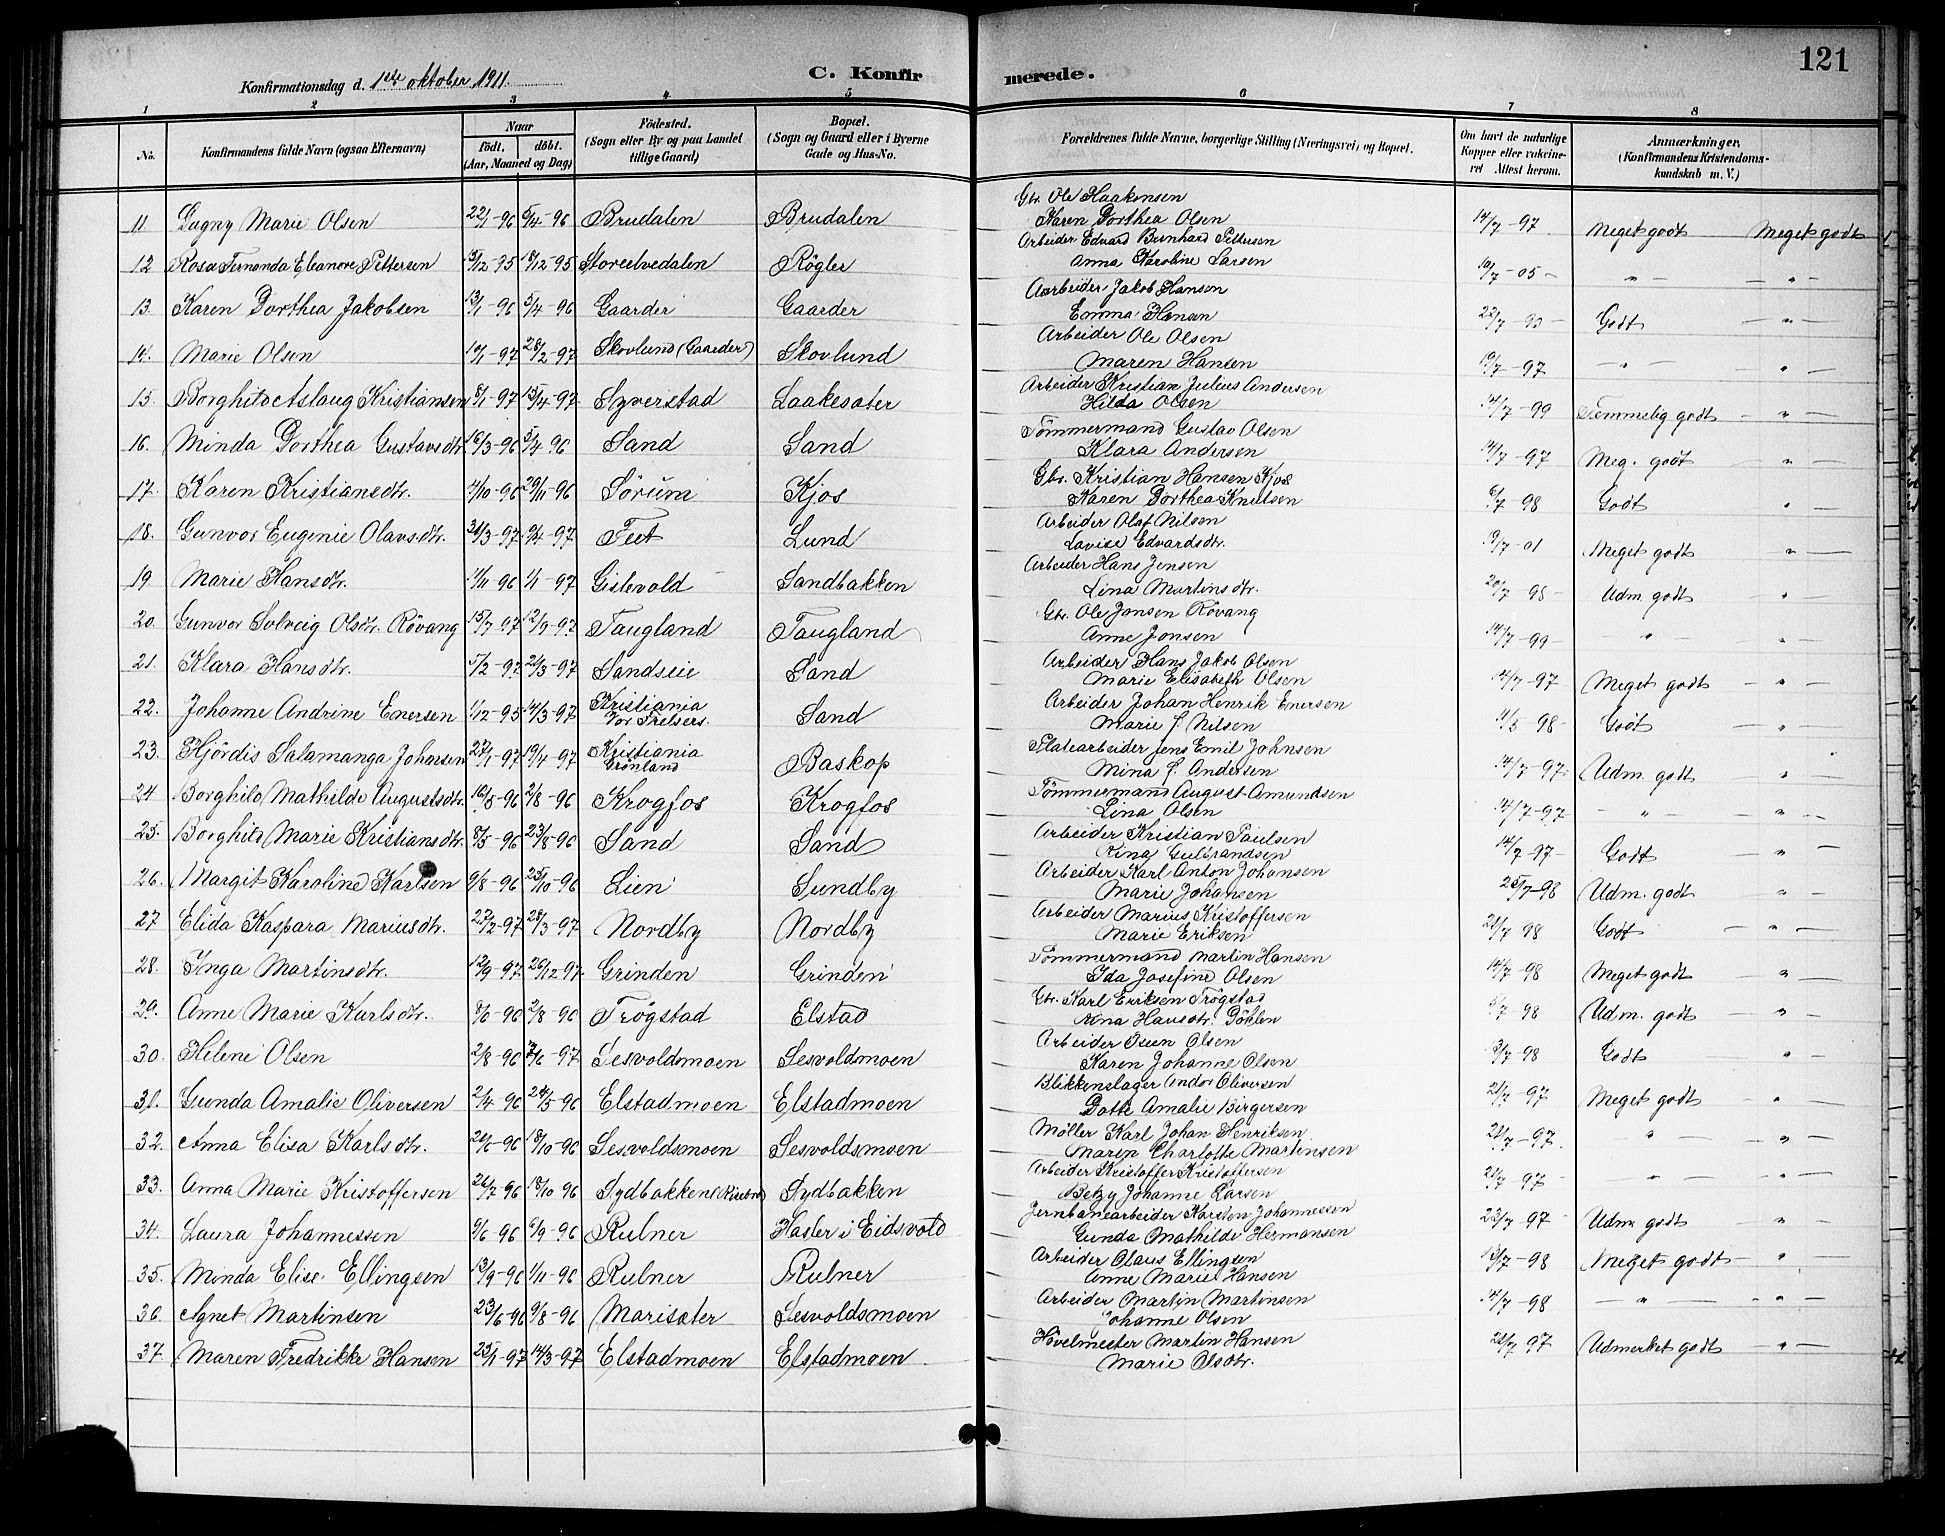 121
Konfirmationsdag d. 1ste oktober 1911.
C. Konfirmerede.
1 2 3 4 5 6 7 8
No.
Konfirmandens fulde Navn (ogsaa Efternavn)
Naar
födt. döbt.
(Aar, Maaned og Dag)
Födested.
(Sogn eller By og paa Landet
tillige Gaard)
Bopæl.
(Sogn og Gaard eller i Byerne
Gade og Hus-No.
Forældrenes fulde Navne, borgerlige Stilling (Næringsvei) og Bopæl.
Om havt de naturlige
Kopper eller vakcine-
ret Attest herom.
Anmærkninger,
(Konfirmandens Kristendoms-
kundskab m. V.)
11 Dagny Marie Olsen 22/1-96 5/4-96 Brudalen Brudalen Gbr. Ole Haakensen
Karen Dorthea Olsen 14/7-97 Meget godt Meget godt
12 Rosa Fernanda Eleanore Pettersen /12-95 /12-95 Storelvedalen Rögler Arbeider Edvard Bernhard Pettersen
Anna Karoline Larsen /7-05 - " - - " -
13. Karen Dorthea Jakobsen 13/1-96 5/4-96 Gaarder Gaarder Aarbeider Jakob Hansen
Emma Hansen 22/7 - Godt - " -
14. Marie Olsen /1-97 28/2-97 Skovlund (Gaarder) Skovlund Arbeider Ole Olsen
Maren Hansen 19/7-97 - " - " -
15. Borghild Aslaug Kristiansen 8/1-97 15/4-97 Syverstad Laakesæter Arbeider Kristian Julius Andersen
Hilda Olsen 14/7-99 Temmelig godt - " -
16. Minda Dorthea Gustavsdtr. 16/3-96 5/4 96 Sand Sand Tömmermand Gustav Olsen
Klara Andersen 14/7-97 Meg. godt - " -
17. Karen Kristiansdtr. /10-96 29/11-96 Sörum Kjos Gbr. Kristian Hansen Kjos
Karen Dorthea Knutsen 6/7 98 Godt " -
18. Gunvor Eugenie Olavsdtr. 31/3-97 /4-97 Fet Lund Arbeider Olaf Nilsen
Lovise Edvardsdtr. /7-01 Meget godt " -
19 Marie Hansdtr. /11-96 1/1-97 Gistevold Sandbakken Arbeider Hans Jensen
Lina Martinsdtr. 20/7 98- Udm. godt - " -
20. Gunvor Solveig Olsdtr. Rövang 15/7-97 12/9-97 Taugland Taugland Gbr. Ole Jonsen Rövang
Anne Jonsen 14/7-99- " - " -
21. Klara Hansdtr. /2-97 21/3-97 Sandseie Sand Arbeider Hans Jakob Olsen
Marie Elisabeth Olsen 14/7-97 Meget godt - " -
22. Johanne Andrine Enersen 1/12-95 14/3-97 Kristiania
Vor Frelsers. Sand Arbeider Johan Henrik Enersen
Marie f. Nilsen /5 98- Godt - "
23. Hjördis Salamanga Johnsen 27/1-97 19/4-97 Kristiania
Grönland Baskop Platearbeider Jens Emil Johnsen
Mina f. Andersen 14/7-97. Udm. godt "
24 Borghild Mathilde Augustsdtr. 16/5-96 2/8-96 Krogfos Krogfos Tömmermand August Amundsen
Lina Olsen 14/7-97 - " - - " -
25. Borghild Marie Kristiansdtr. 8/5-96 23/8-96 Sand Sand Arbeider Kristian Paulsen
Rina Gulbrandsen 14/7-97- Godt - " -
26. Margit Karoline Karlsen 9/8-96 25/10-96 Lien Sundby Arbeider Karl Anton Johansen
Marie Johansen 25/7-98 Udm. godt - " -
27 Elida Kaspara Mariusdtr. 27/2-97 28/3-97 Nordby Nordby Arbeider Marius Kristoffersen
Marie Eriksen 21/7 98 Godt - " -
28. Inga Martinsdtr. 12/9-97. 26/12-97. Grinden Grinden Tömmermand Martin Hansen
Ida Josefine Olsen 14/7-98 Meget godt - " -
29. Anne Marie Karlsdtr. 8/6-96 2/8-96 Trögstad Elstad Gbr. Karl Eriksen Trögstad
Rina Hansdtr. Döhlen /7 98 Udm. godt - " -
30. Helene Olsen 2/8-96 /6-97 Sesvoldsmoen Sesvoldsmoen Arbeider Iver Olsen
Karen Johanne Olsen 13/7-98 Godt " -
31. Gunda Amalie Oliversen 2/4-96 24/5-96 Elstadmoen Elstadmoen Blikkenslager Andor Oliversen
Dotte Amalie Birgersen 21/7-97 Meget godt - " -
32. Anna Elisa Karlsdtr. 21/6-96 18/10-96 Sesvoldsmoen Sesvoldsmoen Möller Karl Johan Henriksen
Maren Charlotte Martinsen 21/7-97. - " - - " -
33. Anna Marie Kristoffersen 26/7 96 18/10 96 Sydbakken Sydbakken Arbeider Kristoffer Kristoffersen
Betzy Johanne Larsen 21/7-97 - " - "
34. Laura Johannessen 9/6 96 6/9-96 Rulner Hasler i Eidsvold Jernbanearbeider Karsten Johannessen
Gunda Mathilde Hermansen 23/7-97 Udm godt - " -
35. Minda Elise Ellingsen 13/9-96 1/11-96 Rulner Rulner Arbeider Olaus Ellingsen
Anne Marie Hansen 13/7-98 Meget godt - "
36. Agnet Martinsen 23/6-96 9/8-96 Marisæter Sesvoldsmoen Arbeider Martin Martinsen
Johanne Olsen 14/7-98 - " - - " -
37. Maren Fredrikke Hansen 25/1-97 14/3-97 Elstadmoen Elstadmoen. Hövelmester Martin Hansen
Marie Olsdtr. 21/7 97 Udmerket godt - " -